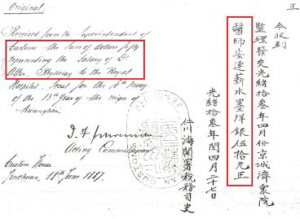 Original
Received from the Superintendent of
Customs the sum of dollars fifty
representing the Salary of Dr
Allen, Physician to the Royal
Hospital Seoul for the 4th moon
of the 13th Year of the reign of
Kwanghsu.
Acting Commissioner
Custom House
Jenchuan, 18th June 1887.
正
今收到
監理發交光緒拾叁年四月份京城濟衆院
醫師安連薪水墨洋銀伍拾元正
光緒拾叁年閏四月二十七日
仁川海關署稅務司史